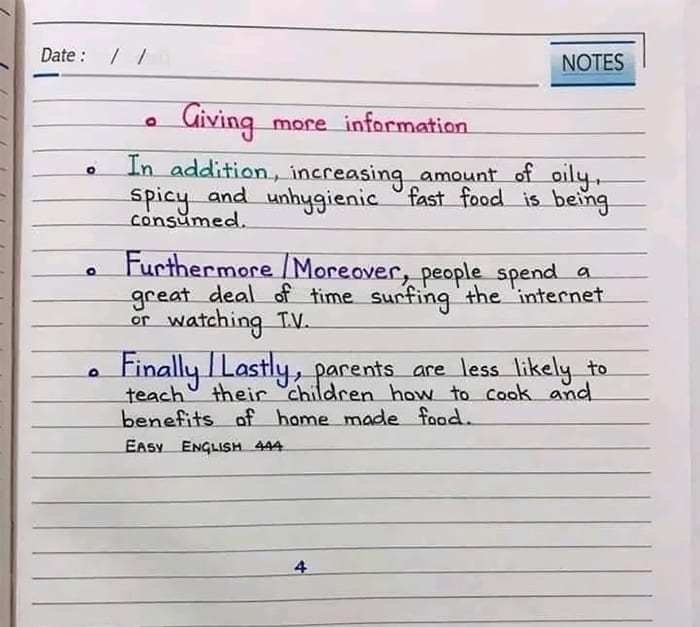 Date : / /
NOTES
Giving more information
In addition, increasing amount of oily,
spicy and unhygienic fast food is being
consumed.
Furthermore / Moreover, people spend a
great deal of time surfing the internet
or watching T.V.
Finally / Lastly, parents are less likely to
teach their children how to cook and
benefits of home made food.
EASY ENGLISH 444
4